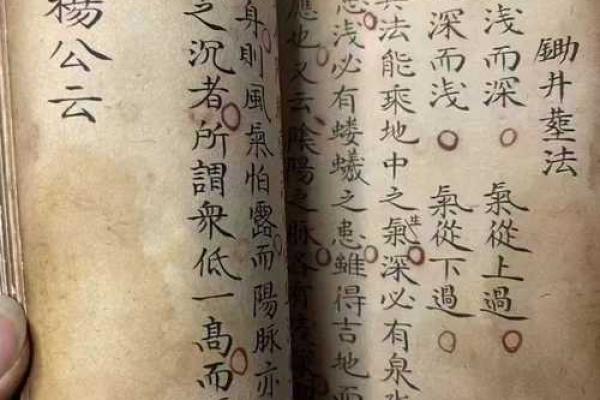 鋤井塟法
浅而深 氣從上過
深而浅 氣從下過
法能乘地中之生氣深必有泉
浅必有蝼蟻之患雖得吉地而
應也又云陰陽之脉各有
身則風氣怕露而陽脉亦
之沉者所謂衆低一髙而
楊公云